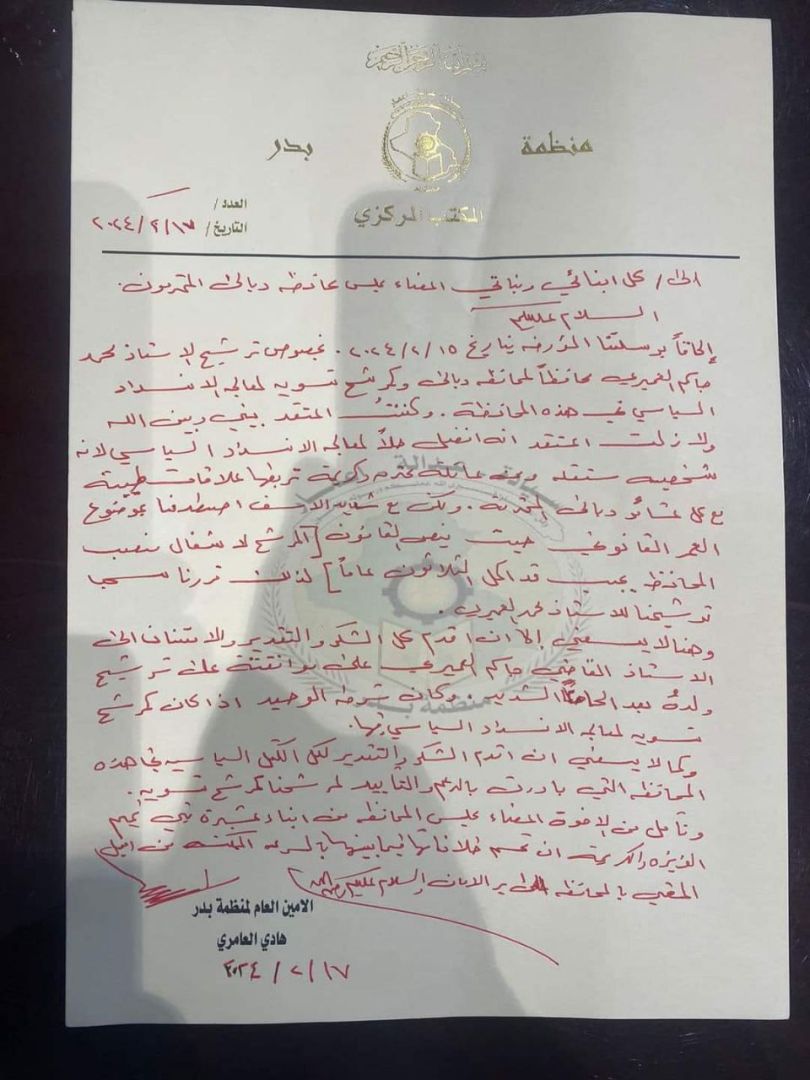 بسم الله الرحمن الرحيم
منظمة بدر
المكتب المركزي
العدد /
التاريخ / ٢٠٢٤/٢/١٧
الى / كل ابنائي وبناتي اعضاء مجلس محافظة ديالى المحترمون.
السلام عليكم
إلحاقاً برسالتنا المؤرخة بتاريخ ٢٠٢٤/٢/١٥. بخصوص ترشيح الاستاذ محمد
جاسم العميري محافظاً لمحافظة ديالى وكمرشح تسوية لمعالجة الانسداد
السياسي في هذه المحافظة. وكنتُ اعتقد بيني وبين الله
ولا زلت اعتقد انه افضل حلاً لمعالجة الانسداد السياسي لانه
شخصية مستقلة ومن عائلة محترمة كريمة تربطها علاقات طيبة
مع كل عشائر ديالى المحترمة. ولكن مع شديد الاسف اصطدمنا بموضوع
العمر القانوني حيث ينص القانون [المرشح لاشغال منصب
المحافظ يجب قد اكمل الثلاثون عاماً] لذلك قررنا سحب
ترشيحنا للاستاذ محمد العميري.
وهنا لا يسعني إلا ان اقدم كل الشكر والتقدير والامتنان الى
الاستاذ القاضي جاسم العميري على موافقته على ترشيح
ولده بعد الحاحنا الشديد. وكان شرطه الوحيد اذا كان كمرشح
تسوية لمعالجة الانسداد السياسي فيها.
وكما لا يسعني ان اقدم الشكر والتقدير لكل الكتل السياسية في هذه
المحافظة التي بادرت بالدعم والتأييد لمرشحنا كمرشح تسوية.
ونأمل من الاخوة اعضاء مجلس المحافظة من ابناء عشيرة بني تميم
العزيزة والكريمة ان تحسم خلافاتها فيما بينها بالسرعة الممكنة من اجل
المضي بالمحافظة الى بر الامان والسلام عليكم ورحمة الله
الامين العام لمنظمة بدر
هادي العامري
٢٠٢٤/٢/١٧
منظمة بدر